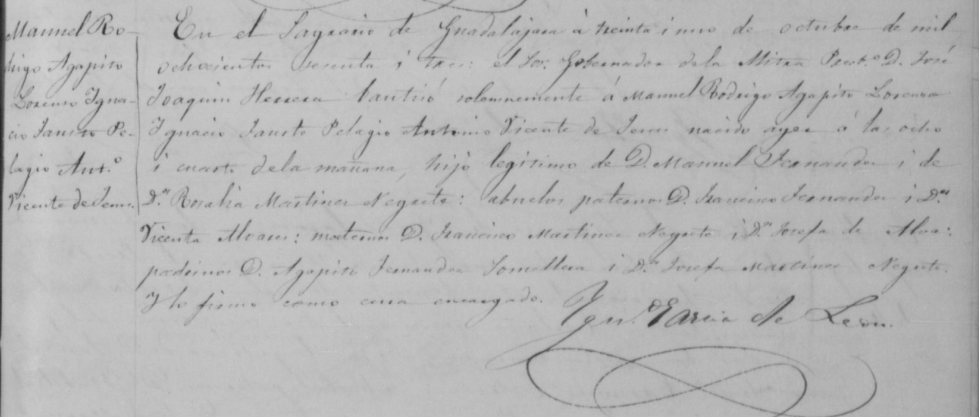 Manuel Ro-
drigo Agapito
Lorenzo Igna-
cio Fausto Pe-
lagio Ant.º
Vicente de Jesus.
En el Sagrario de Guadalajara á treinta i uno de octubre de mil
ochocientos sesenta i tres: el Sor. Gobernador dela Mitra Presb.º D. José
Joaquin Herrera bautisó solemnemente á Manuel Rodrigo Agapito Lorenzo
Ignacio Fausto Pelagio Antonio Vicente de Jesus nacido ayer á las ocho
i cuarto dela mañana, hijo legitimo de D. Manuel Fernandez i de
Dª Rosalia Martinez Negrete: abuelos paternos D. Francisco Fernandez i Dª
Vicenta Alvarez: maternos D. Francisco Martinez Negrete i Dª Josefa de Alva:
padrinos D. Agapito Fernandez Somellera i Dª Josefa Martinez Negrete.
I lo firmo como cura encargado.
Ign.º Garcia de Leon.